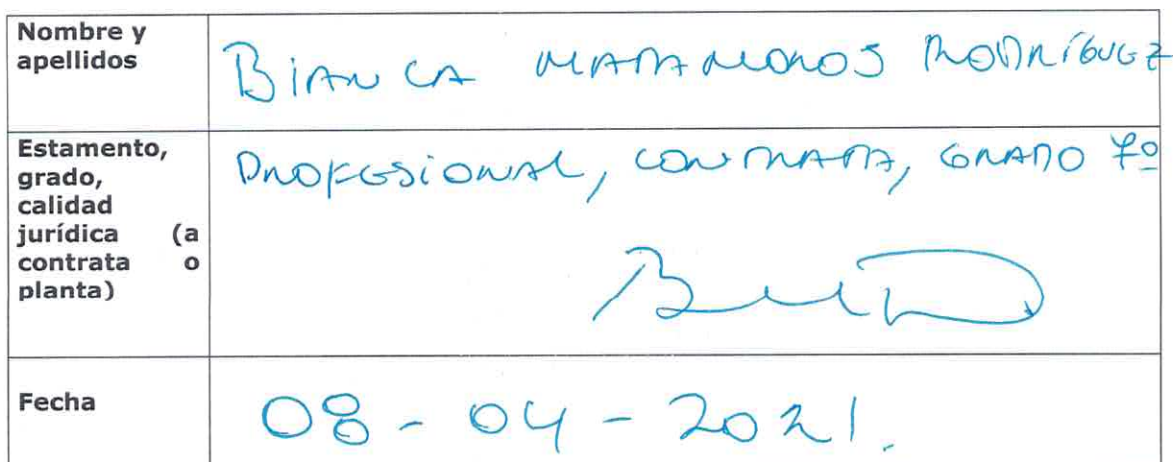 Nombre y
apellidos
BIANCA MATAMOROS RODRÍGUEZ
Estamento,
grado,
calidad
jurídica (a
contrata o
planta)
PROFESIONAL, CONTRATA, GRADO 7º
Fecha
08-04-2021.